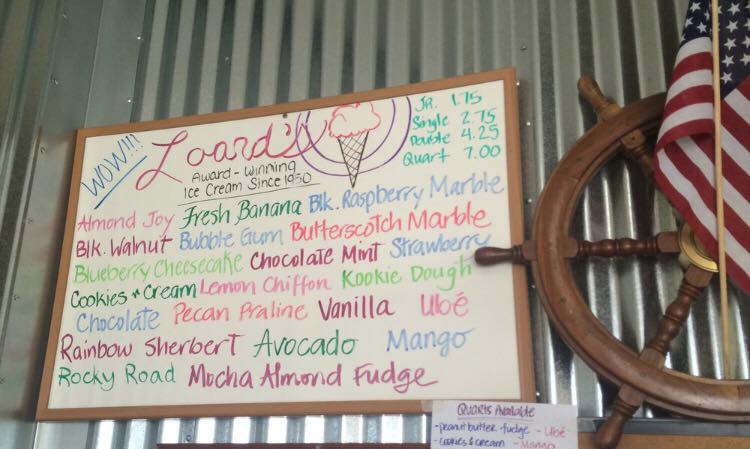 WOW!!!
Loard's
Award-Winning
Ice Cream Since 1950
JR. 1.75
Single 2.75
Double 4.25
Quart 7.00
Almond Joy Fresh Banana Blk. Raspberry Marble
Blk. Walnut Bubble Gum Butterscotch Marble
Blueberry Cheesecake Chocolate Mint Strawberry
Cookies + Cream Lemon Chiffon Kookie Dough
Chocolate Pecan Praline Vanilla Ubé
Rainbow Sherbert Avocado Mango
Rocky Road Mocha Almond Fudge
Quarts Available
- peanut butter fudge - Ubé
- cookies & cream - Mango